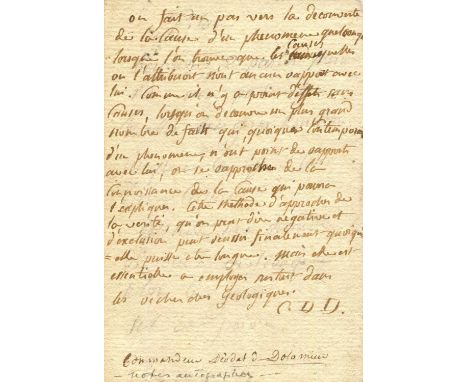 on fait un pas vers la decouverte
de la Cause d'un phenomene quelconque
lorsque l'on trouve que les causes auxquelles
on l'attribuoit n'ont aucun rapport avec
lui. Comme il n'y a point d'effets sans
Causes, lorsqu'on decouvre un plus grand
nombre de faits qui, quoique contemporains
d'un phenomene, n'ont point de rapports
avec lui, on se rapproche de la
Connoissance de la Cause qui pourra
l'expliquer. Cette methode d'approcher de
la verité, qu'on peut dire négative et
d'exclusion peut reussir finalement quoiqu'
=elle puisse etre longue. Mais elle est
essentielle a employer surtout dans
les recherches Geologiques.
C. D D.
Commandeur Déodat de Dolomieu
notes autographes